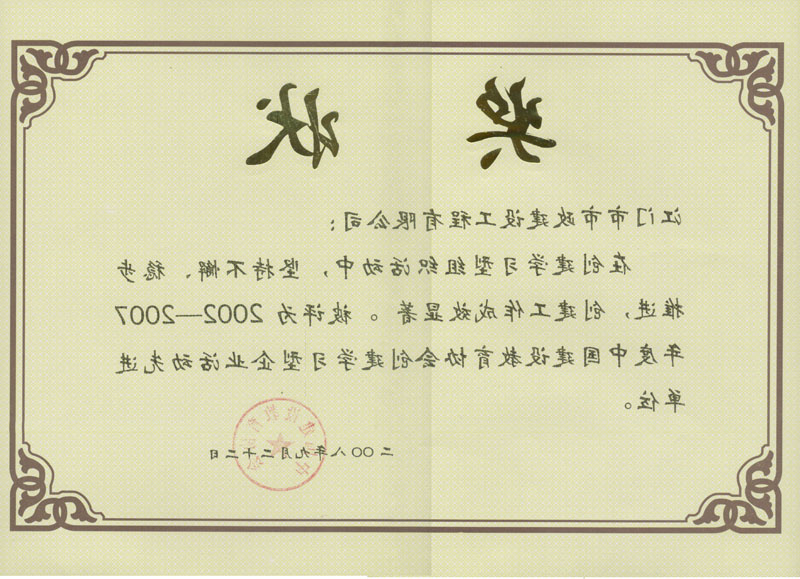 奖状
江门市市政建设工程有限公司：
在创建学习型组织活动中，坚持不懈、稳步
推进，创建工作成效显著。被评为 2002—2007
年度中国建设教育协会创建学习型企业活动先进
单位。
中国建设教育协会
二〇〇八年九月二十二日